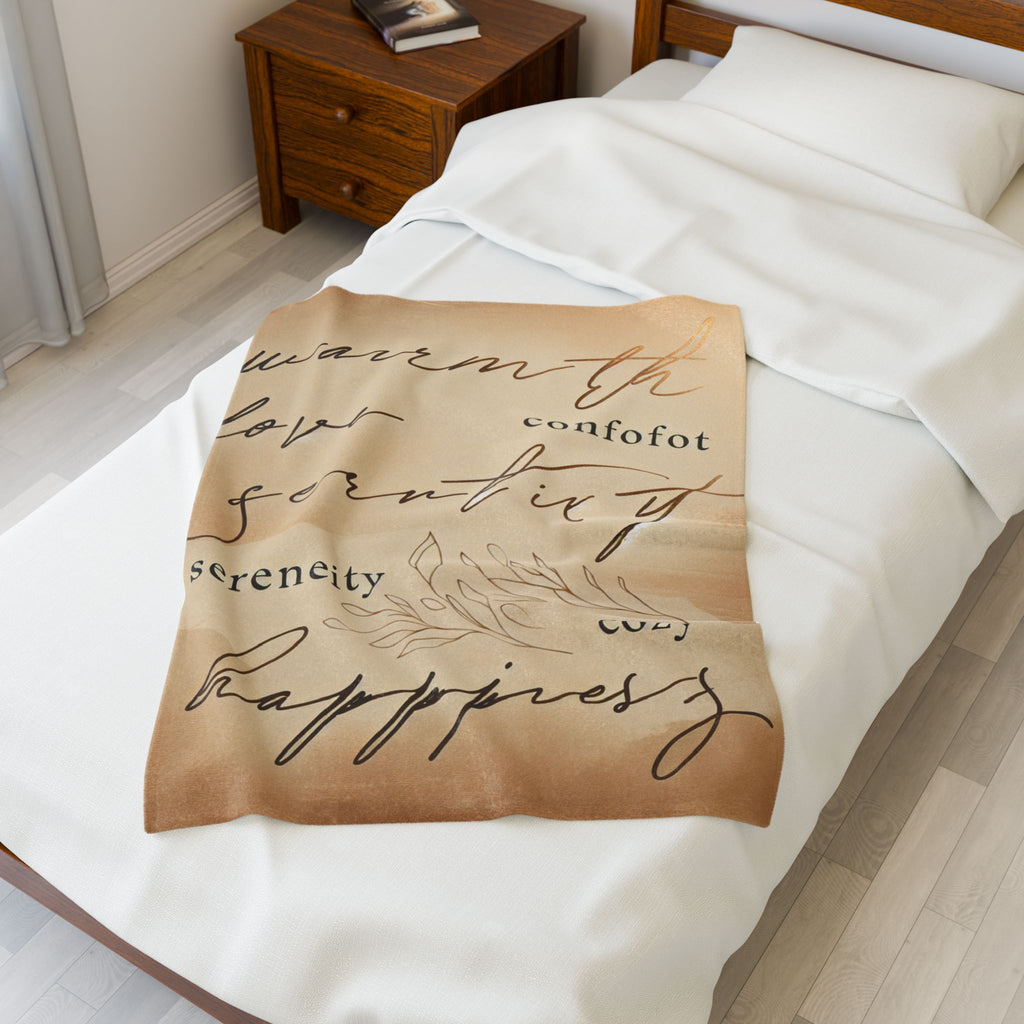 warmth
love
confofot
sereneity
cozy
happiness